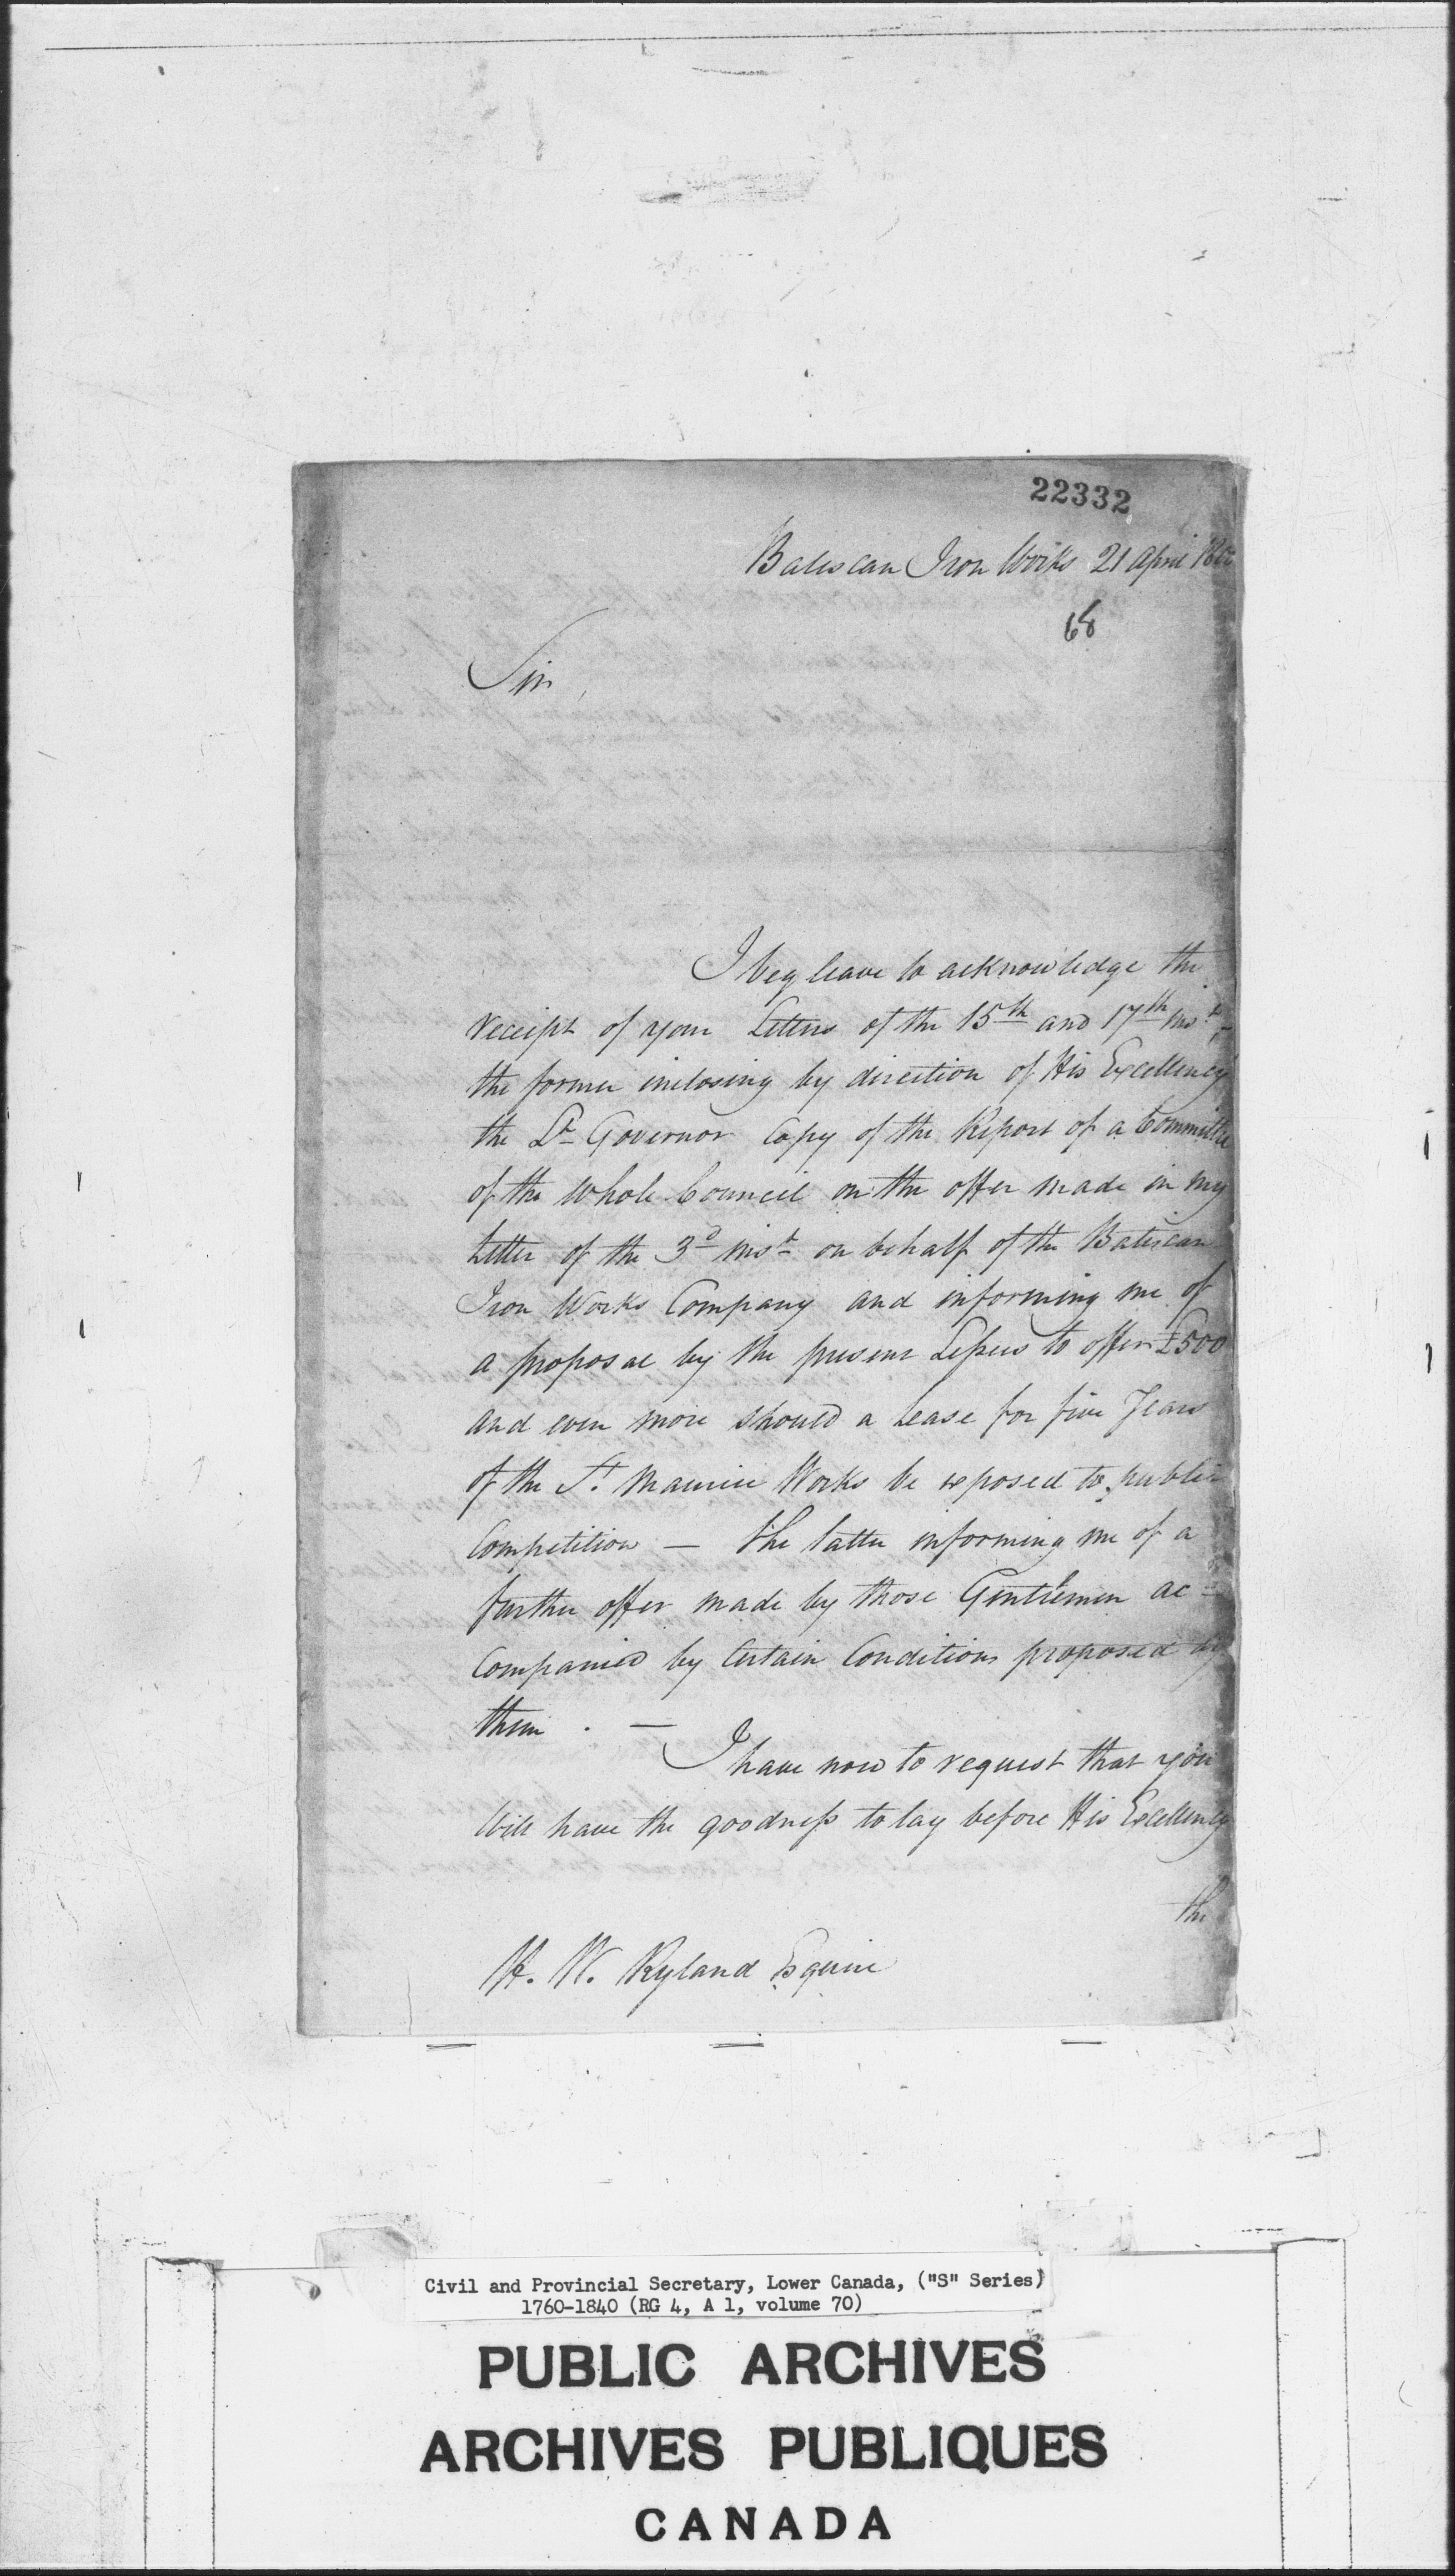 22332
Batiscan Iron Works 21 April
68
Sir,
I beg leave to acknowledge the
receipt of your Letters of the 15th and 17th inst,
the former inclosing by direction of His Excellency
the Lt Governor Copy of the Report of a Committee
of the whole Council on the offer made in my
Letter of the 3d inst on behalf of the Batiscan
Iron Works Company and informing me of
a proposal by the present Lessees to offer £500
and even more should a Lease for five Years
of the St Maurice Works be exposed to public
Competition — the latter informing me of a
further offer made by those Gentlemen ac-
companied by Certain Conditions proposed by
them. —
I have now to request that you
Will have the goodness to lay before His Excellency
the
H. W. Ryland Esquire
Civil and Provincial Secretary, Lower Canada, ("S" Series)
1760-1840 (RG 4, A 1, volume 70)
PUBLIC ARCHIVES
ARCHIVES PUBLIQUES
CANADA